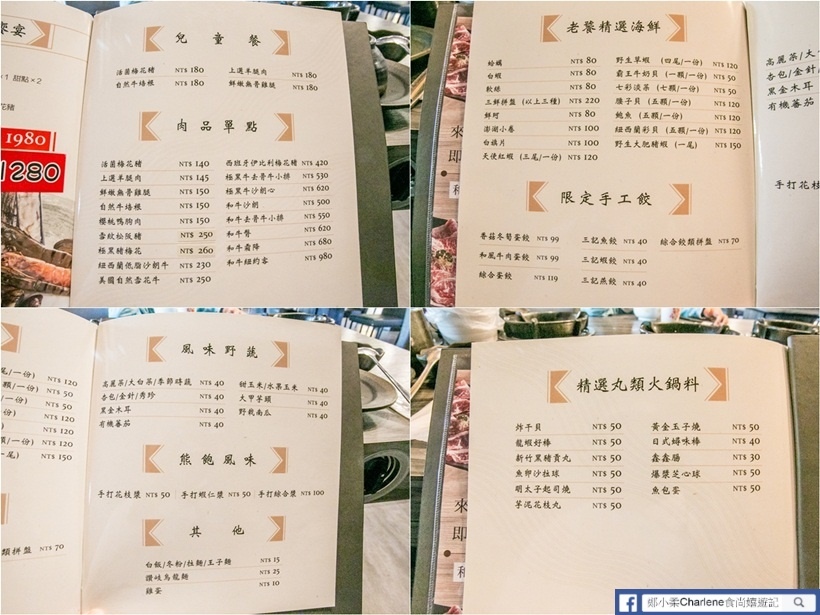 饗宴
×1 甜點×2
花豬
1980
1280
兒童餐
活菌梅花豬 NT$ 180
自然牛培根 NT$ 180
上選羊腿肉 NT$ 180
鮮嫩無骨雞腿 NT$ 180
肉品單點
活菌梅花豬 NT$ 140
上選羊腿肉 NT$ 145
鮮嫩無骨雞腿 NT$ 150
自然牛培根 NT$ 150
櫻桃鴨胸肉 NT$ 150
雪紋松阪豬 NT$ 250
極黑豬梅花 NT$ 260
紐西蘭低脂沙朗牛 NT$ 230
美國自然雪花牛 NT$ 250
西班牙伊比利梅花豬 NT$ 420
極黑牛去骨牛小排 NT$ 530
極黑牛沙朗心 NT$ 620
和牛沙朗 NT$ 500
和牛去骨牛小排 NT$ 550
和牛臀 NT$ 620
和牛霜降 NT$ 680
和牛紐約客 NT$ 980
老饕精選海鮮
蛤蠣 NT$ 80
白蝦 NT$ 80
軟絲 NT$ 80
三鮮拼盤 (以上三種) NT$ 220
鮮蚵 NT$ 80
澎湖小卷 NT$ 100
白旗片 NT$ 100
天使紅蝦 (三尾/一份) NT$ 120
野生草蝦 (四尾/一份) NT$ 120
霸王牛奶貝 (一顆/一份) NT$ 50
七彩淡菜 (七顆/一份) NT$ 50
膽子貝 (五顆/一份) NT$ 120
鮑魚 (五顆/一份) NT$ 120
紐西蘭彩貝 (五顆/一份) NT$ 120
野生大肥豬蝦 (一尾) NT$ 150
限定手工餃
香菇冬筍蛋餃 NT$ 99
和風牛肉蛋餃 NT$ 99
綜合蛋餃 NT$ 119
三記魚餃 NT$ 40
三記蝦餃 NT$ 40
三記燕餃 NT$ 40
綜合餃類拼盤 NT$ 70
高麗菜/大
杏包/金針/
黑金木耳
有機蕃茄
手打花枝
來
即
尾/一份) NT$ 120
顆/一份) NT$ 50
/一份) NT$ 50
一份) NT$ 120
一份) NT$ 120
/一份) NT$ 120
一尾) NT$ 150
類拼盤 NT$ 70
風味野蔬
高麗菜/大白菜/季節時蔬 NT$ 40
杏包/金針/秀珍 NT$ 40
黑金木耳 NT$ 40
有機蕃茄 NT$ 40
甜玉米/水果玉米 NT$ 40
大甲芋頭 NT$ 40
野栽南瓜 NT$ 40
熊飽風味
手打花枝漿 NT$ 50 手打蝦仁漿 NT$ 50 手打綜合漿 NT$ 100
其他
白飯/冬粉/拉麵/王子麵 NT$ 15
讚岐烏龍麵 NT$ 25
雞蛋 NT$ 10
精選丸類火鍋料
炸干貝 NT$ 50
龍蝦好棒 NT$ 50
新竹黑豬貢丸 NT$ 50
魚卵沙拉球 NT$ 50
明太子起司燒 NT$ 50
芋泥花枝丸 NT$ 50
黃金玉子燒 NT$ 50
日式蟳味棒 NT$ 40
鑫鑫腸 NT$ 30
爆漿芝心球 NT$ 50
魚包蛋 NT$ 50
來
即
鄭小柔Charlene食尚嬉遊記